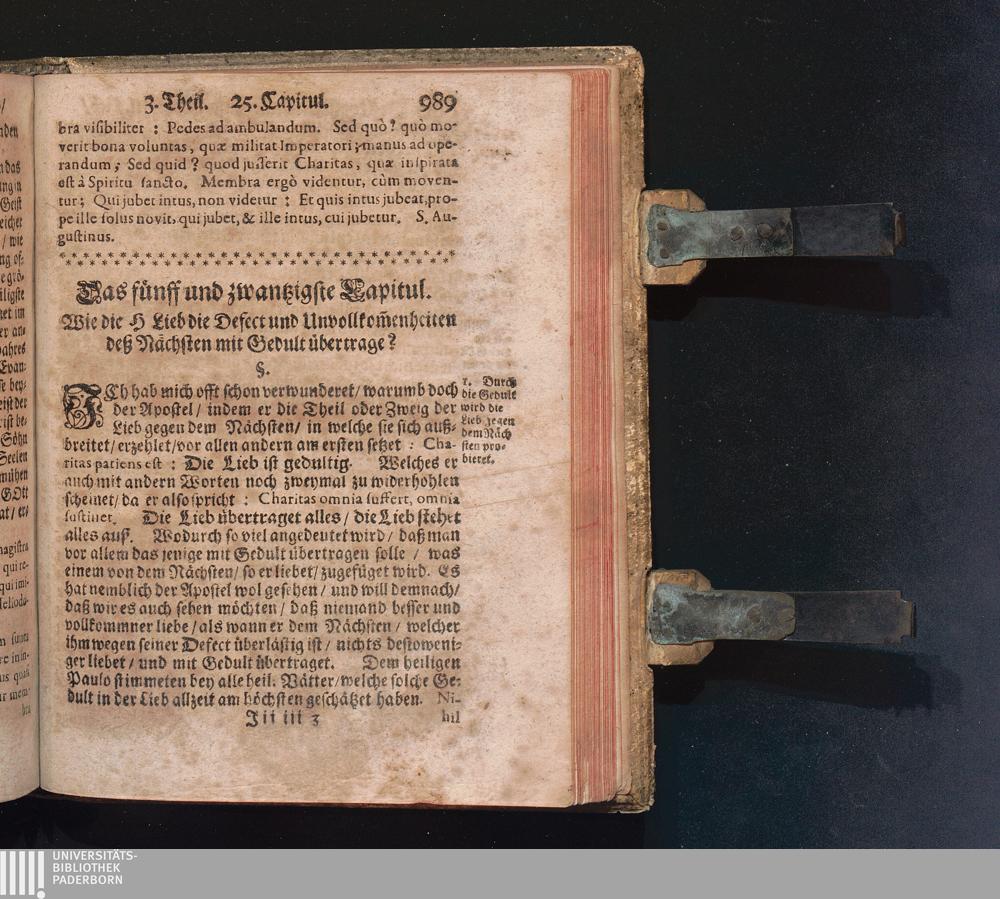 3. Theil. 25. Capitul. 989
bra visibiliter : Pedes ad ambulandum. Sed quò? quò mo-
verit bona voluntas, quæ militat Imperatori; manus ad ope-
randum; Sed quid? quod jusserit Charitas, quæ inspirata
est à Spiritu sancto. Membra ergò videntur, cùm moven-
tur; Qui jubet intus, non videtur : Et quis intus jubeat, pro-
pe ille solus novit, qui jubet, & ille intus, cui jubetur. S. Au-
gustinus.
Das fünff und zwantzigste Capitul.
Wie die H Lieb die Defect und Unvollkom̃enheiten
deß Nächsten mit Gedult übertrage?
§.
ICh hab mich offt schon verwunderet / warumb doch
der Apostel / indem er die Theil oder Zweig der
Lieb gegen dem Nächsten / in welche sie sich auß-
breitet / erzehlet / vor allen andern am ersten setzet : Cha-
ritas patiens est : Die Lieb ist gedultig. Welches er
auch mit andern Worten noch zweymal zu widerhohlen
scheinet / da er also spricht : Charitas omnia suffert, omnia
sustinet. Die Lieb übertraget alles / die Lieb stehet
alles auß. Wodurch so viel angedeutet wird / daß man
vor allem das jenige mit Gedult übertragen solle / was
einem von dem Nächsten / so er liebet / zugefüget wird. Es
hat nemblich der Apostel wol gesehen / und will demnach /
daß wir es auch sehen möchten / daß niemand besser und
vollkommner liebe / als wann er dem Nächsten / welcher
ihm wegen seiner Defect überlästig ist / nichts destoweni-
ger liebet / und mit Gedult übertraget. Dem heiligen
Paulo stimmeten bey alle heil. Vätter / welche solche Ge-
dult in der Lieb allzeit am höchsten geschätzet haben. Ni-
Jii iii 3 hil
1. Durch
die Gedult
wird die
Lieb gegen
dem Näch
sten pro-
bieret.
nden
das
Geist
/ wie
ng of-
e grö-
iligste
et im
er an-
ahres
Evan-
se bey-
eist der
Söhn
Seelen
mühen
GOtt
at / er-
magistra
qui re-
qui imi-
Heliodo-
bra
UNIVERSITÄTS-
BIBLIOTHEK
PADERBORN